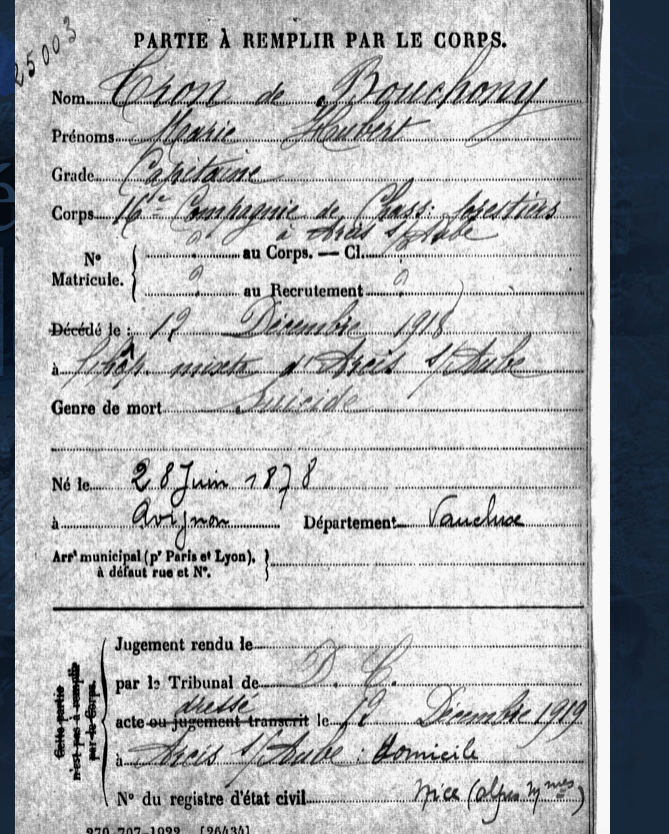 25003
PARTIE À REMPLIR PAR LE CORPS.
Nom Tron de Bouchony
Prénoms Marie Hubert
Grade Capitaine
Corps 16e Compagnie de Chass: forestiers
à Arcis s/Aube
N° Matricule. { ? au Corps. — Cl.
? au Recrutement ?
Décédé le : 12 Décembre 1918
à l'hôp. mixte d'Arcis s/Aube
Genre de mort Suicide
Né le 28 Juin 1878
à Avignon Département Vaucluse
Arrt municipal (pr Paris et Lyon), }
à défaut rue et N°.
Cette partie n'est pas à remplir par le Corps.
Jugement rendu le
par le Tribunal de D. C.
dressé
acte ou jugement transcrit le 12 Décembre 1919
à Arcis s/Aube : Domicile
N° du registre d'état civil Nice (Alpes Mmes)
270-707-1922. [26434]